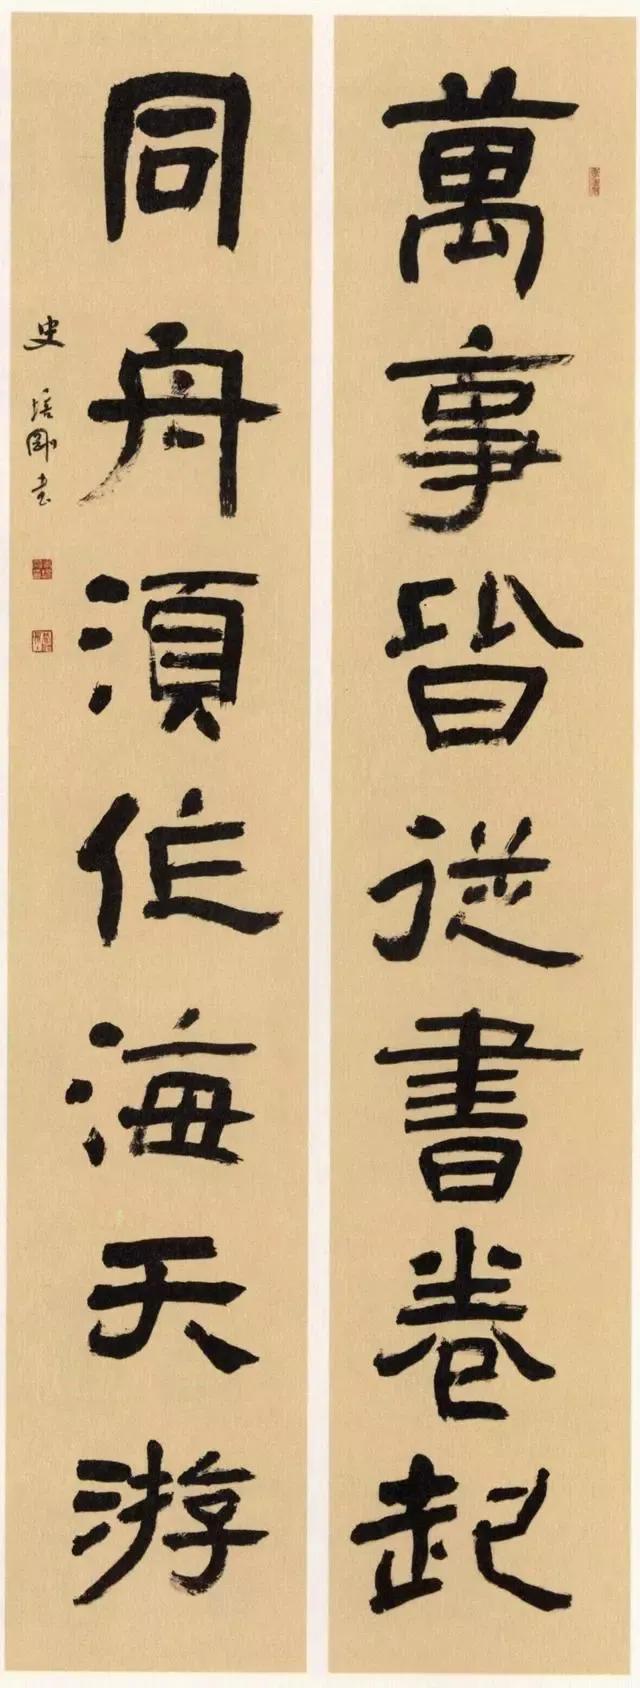 萬事皆從書卷起
同舟須作海天游
史培剛書